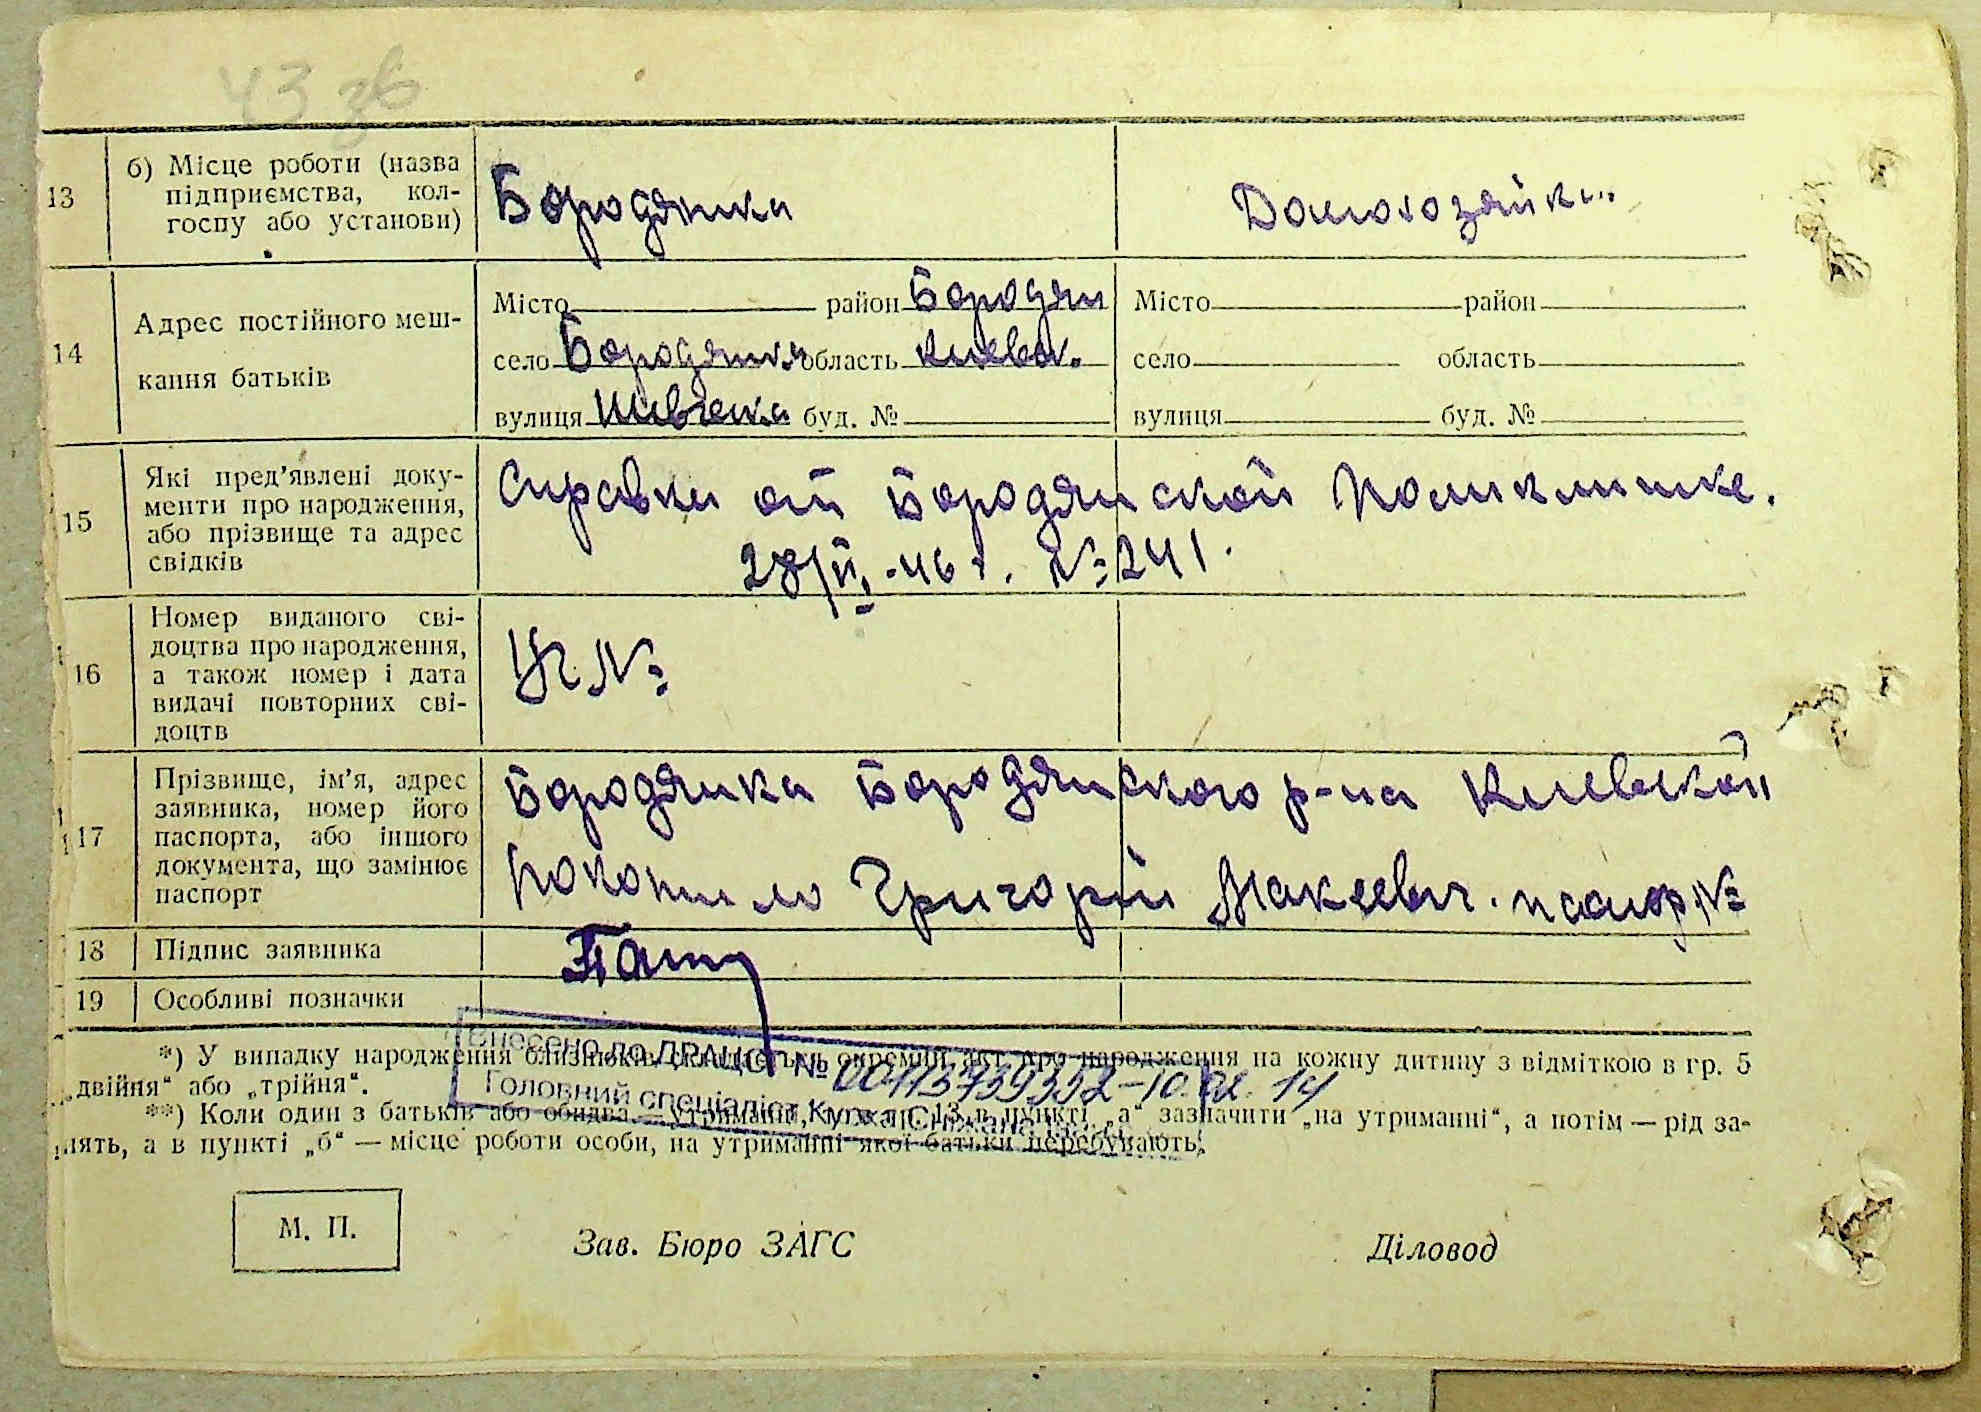 43 зв
13 б) Місце роботи (назва
підприємства, кол-
госпу або установи)
Бородянка
Домохозяйка
14 Адрес постійного меш-
кання батьків
Місто район Бородян
село Бородянка область Киевск.
вулиця Шевченка буд. №
Місто район
село область
вулиця буд. №
15 Які пред’явлені доку-
менти про народження,
або прізвище та адрес
свідків
Справки от Бородянской Поликлинике.
28/II.-46 г. № 241.
16 Номер виданого сві-
доцтва про народження,
а також номер і дата
видачі повторних сві-
доцтв
№
17 Прізвище, ім’я, адрес
заявника, номер його
паспорта, або іншого
документа, що замінює
паспорт
Бородянка Бородянского р-на Киевской
Григорій Макеевич. паспор №
18 Підпис заявника
19 Особливі позначки
Внесено до ДРАЦСГ № 00113739352-10.02.14
Головний спеціаліст
*) У випадку народження близнюків складається окремий акт про народження на кожну дитину з відміткою в гр. 5
„двійня“ або „трійня“.
**) Коли один з батьків або обидва — утриманці, то в гр. 13 в пункті „а“ зазначити „на утриманні“, а потім — рід за-
нять, а в пункті „б“ — місце роботи особи, на утриманні якої батьки перебувають.
М. П.
Зав. Бюро ЗАГС
Діловод